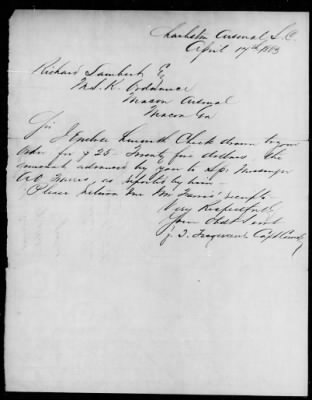 Charleston Arsenal S.C.
April 17th 1863
Richard Lambert Esq
M.S.K. Ordnance
Macon Arsenal
Macon Ga
Sir
I Enclose herewith Check drawn to your
order for $25 Twenty five dollars the
amount advanced by you to Spl. Messenger
Farris, as reported by him
Please return me Mr Farris' receipt
Very Respectfully
Your Obdt Servt
J. T. Trezevant Capt Comdg